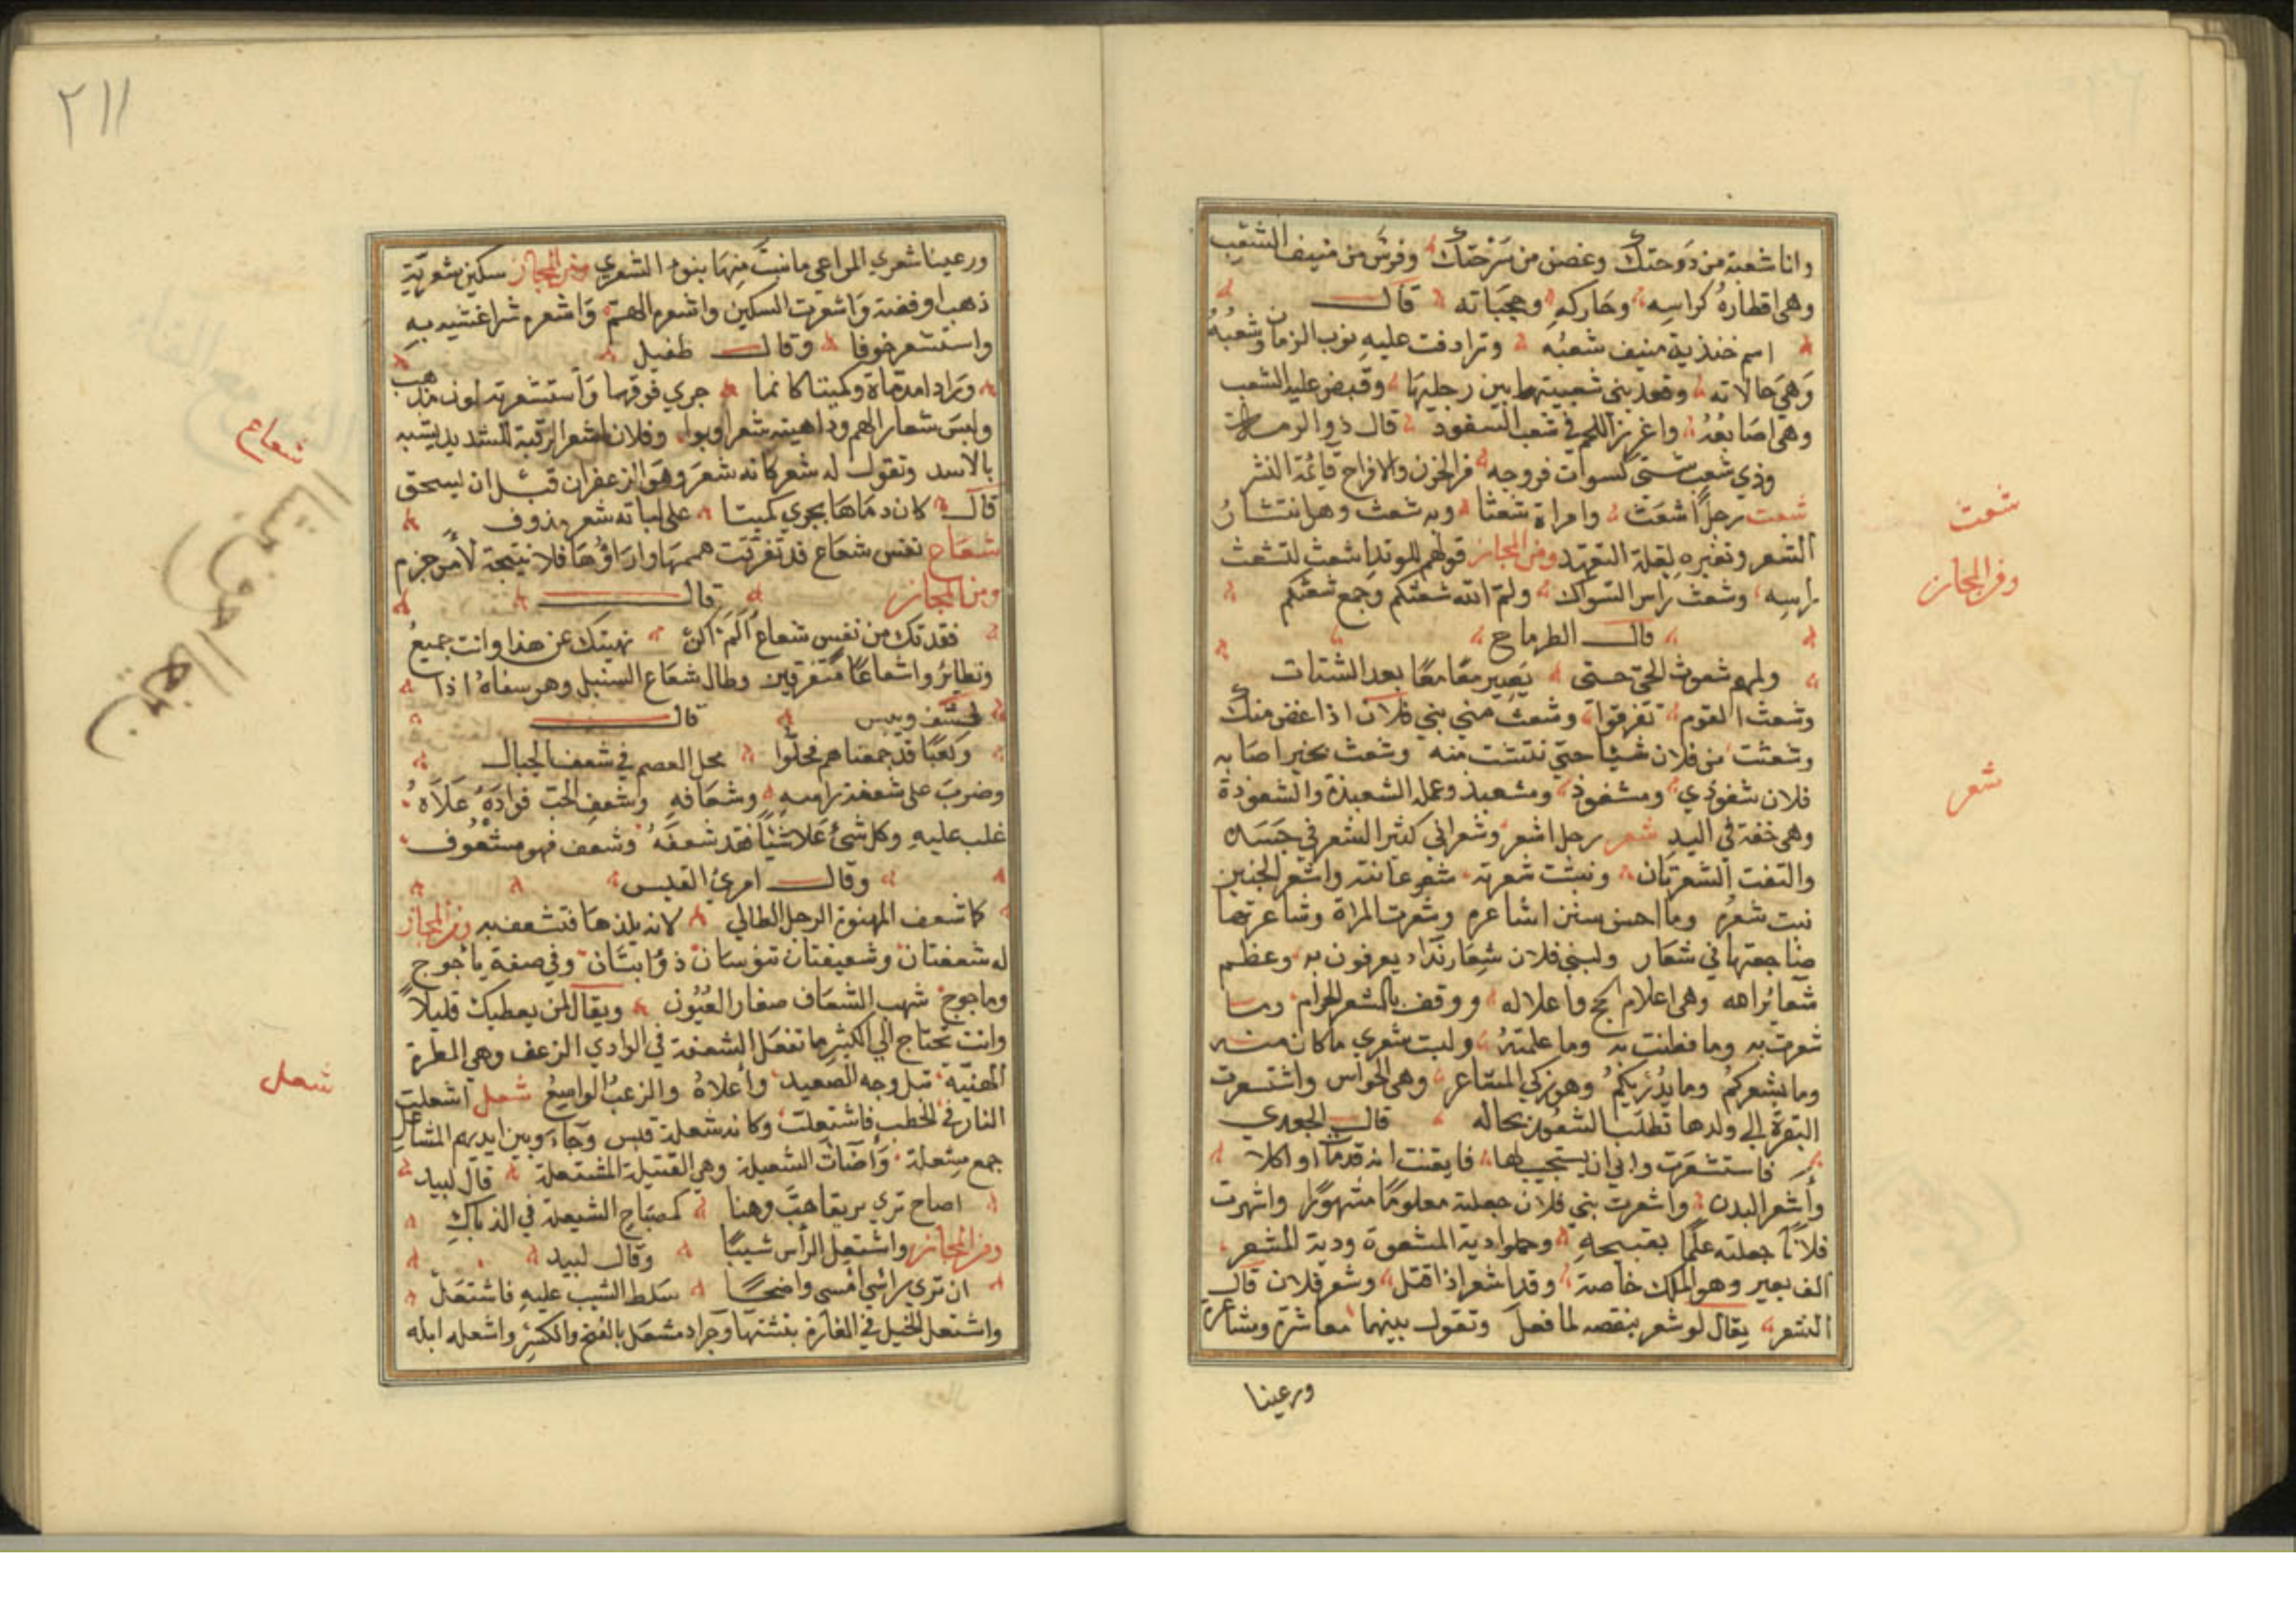 وانا شعبة من دوحتك وغصن من سرحتك وفرس من منيف الشعب
وهي اقطاره كراسه وحاركه وحجباته قال
اسم خنذيذ منيف شعبه وترادفت عليه نوب الزمان وشعبه
وهي حالاته وقعد بني شعبيتها بين رجليها وقبض عليه الشعب
وهي اصابعه واغرز اللحم في شعب السفود قال ذو الرمة
وذي شعب شتى كسوات فروجه
شعث رجل اشعث وامراة شعثا وبه شعث وهو انتشار
الشعر وتغيره لقلة التعهد ومن المجاز قولهم للوتد اشعث لتشعث
راسه وشعث راس السواك ولم الله شعثكم وجمع شعثكم
قال الطرماح
ولمهم شعوث الحي حتى يصير معا معا بعد الشتات
وشعث القوم تفرقوا وشعث مني بني فلان اذا غض منك
وشعثت من فلان شيا حتى نتشت منه وشعث بخير اصابه
فلان شعوذي ومشعوذ ومشعبذ وعمله الشعبذة والشعوذة
وهي خفة في اليد شعر رجل اشعر وشعراني كثير الشعر في جسده
والتفت الشعرتان ونبتت شعرته شعر عانته واشعر الجنين
نبت شعره وما احسن سنن اشاعره وشعرت المراة وشاعرتها
ضاجعتها في شعار ولبني فلان شعار نداء يعرفون به وعظم
شعائر الله وهي اعلام الحج واعلاله ووقف بالمشعر الحرام وما
شعرت به وما فطنت به وما علمته وليت شعري ما كان منه
وما يشعركم وما يدريكم وهو زكي المشاعر وهي الحواس واستشعرت
البقرة الى ولدها تطلب الشعور بحاله قال الجعدي
فاستشعرت وابى ان يستجيب لها فايقنت انه قد مات او اكلا
واشعر البدن واشعرت بني فلان جعلته معلوما مشهورا واشهرت
فلانا جعلته علما بقبيحة وحملوا دية المشعرة ودية المشعر
الف بعير وهو الملك خاصة وقد اشعر اذا قتل وشعر فلان قال
الشعر يقال لو شعر بنقصه لما فعل وتقول بينهما معاشرة ومشاعرة
ورعينا
شعث
ومن المجاز
شعر
٢١١
ورعينا شعري المراعي ما نبت منها بنوء الشعرى ومن المجاز سكين شعيرته
ذهب او فضة واشعرت السكين واشعره الهم واشعره شرا غشيه به
واستشعر خوفا وقال طفيل
ورادا مدماة وكميتا كانما جرى فوقها واستشعرت لون مذهب
ولبس شعار الهم وداهية شعرا وبرا وفلان اشعر الرقبة للشديد يشبه
بالاسد وتقول له شعر كانه شعر وهو الزعفران قبل ان يسحق
قال كان دماها يجري كميتا على لباته شعر مذوف
شعاع نفس شعاع قد تفرقت هممها واراؤها فلا نتيجة لامر جزم
ومن المجاز قال
فقدتك من نفس شعاع الم اكن نهيتك عن هذا وانت جميع
وتطايروا شعاعا متفرقين وطال شعاع السنبل وهو سفاه اذا
شعف ويبس قال
وكعبا قد جمعناهم فحلوا محل العصم في شعف الجبال
وضرب على شعفة راسه وشعافه وشعف الحب فواده علاه
غلب عليه وكل شيء علا شيئا فقد شعفه وشعف فهو مشعوف
وقال امرئ القيس
كما شعف المهنوءة الرجل الطالي لانه يلذها فتشعف به ومن المجاز
له شعفتان وشعيفتان تنوسان ذؤابتان وفي صفة ياجوج
وماجوج شهب الشعاف صغار العيون ويقال لمن يعطيك قليلا
وانت تحتاج الى الكثير ما تفعل الشعفة في الوادي الزعب وهي المطرة
الهينة تبل وجه الصعيد واعلاه والزعب الواسع شعل اشعلت
النار في الحطب فاشتعلت وكانه شعلة قبس وجاء وبين ايديهم المشاعل
جمع مشعلة واضاءت الشعيلة وهي الفتيلة المشتعلة قال لبيد
اصاح ترى بريقا هب وهنا كمصباح الشعيلة في الذبال
ومن المجاز واشتعل الراس شيبا وقال لبيد
ان تري راسي امسى واضحا سلط الشيب عليه فاشتعل
واشتعل الخيل في الغارة بثثتها وجراد مشعل بالفتح والكسر واشعله ابله
شعاع
شعل